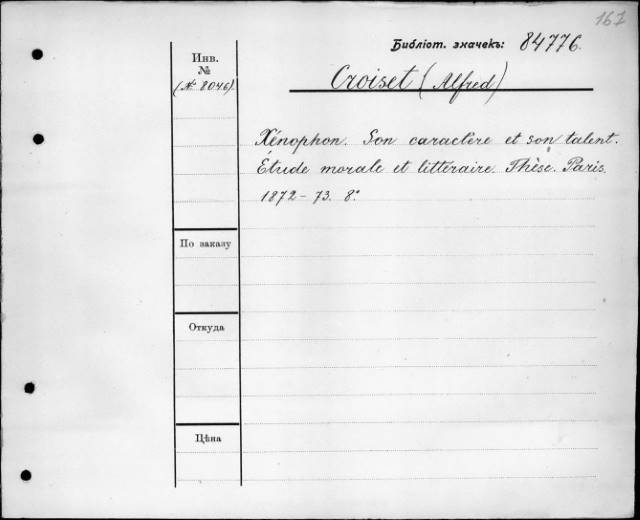 167
Библіот. значекъ: 84776.
Инв.
№
(№ 8046)
Croiset (Alfred)
Xénophon. Son caractère et son talent.
Étude morale et littéraire. Thèse. Paris.
1872-73. 8°.
По заказу
Откуда
Цѣна